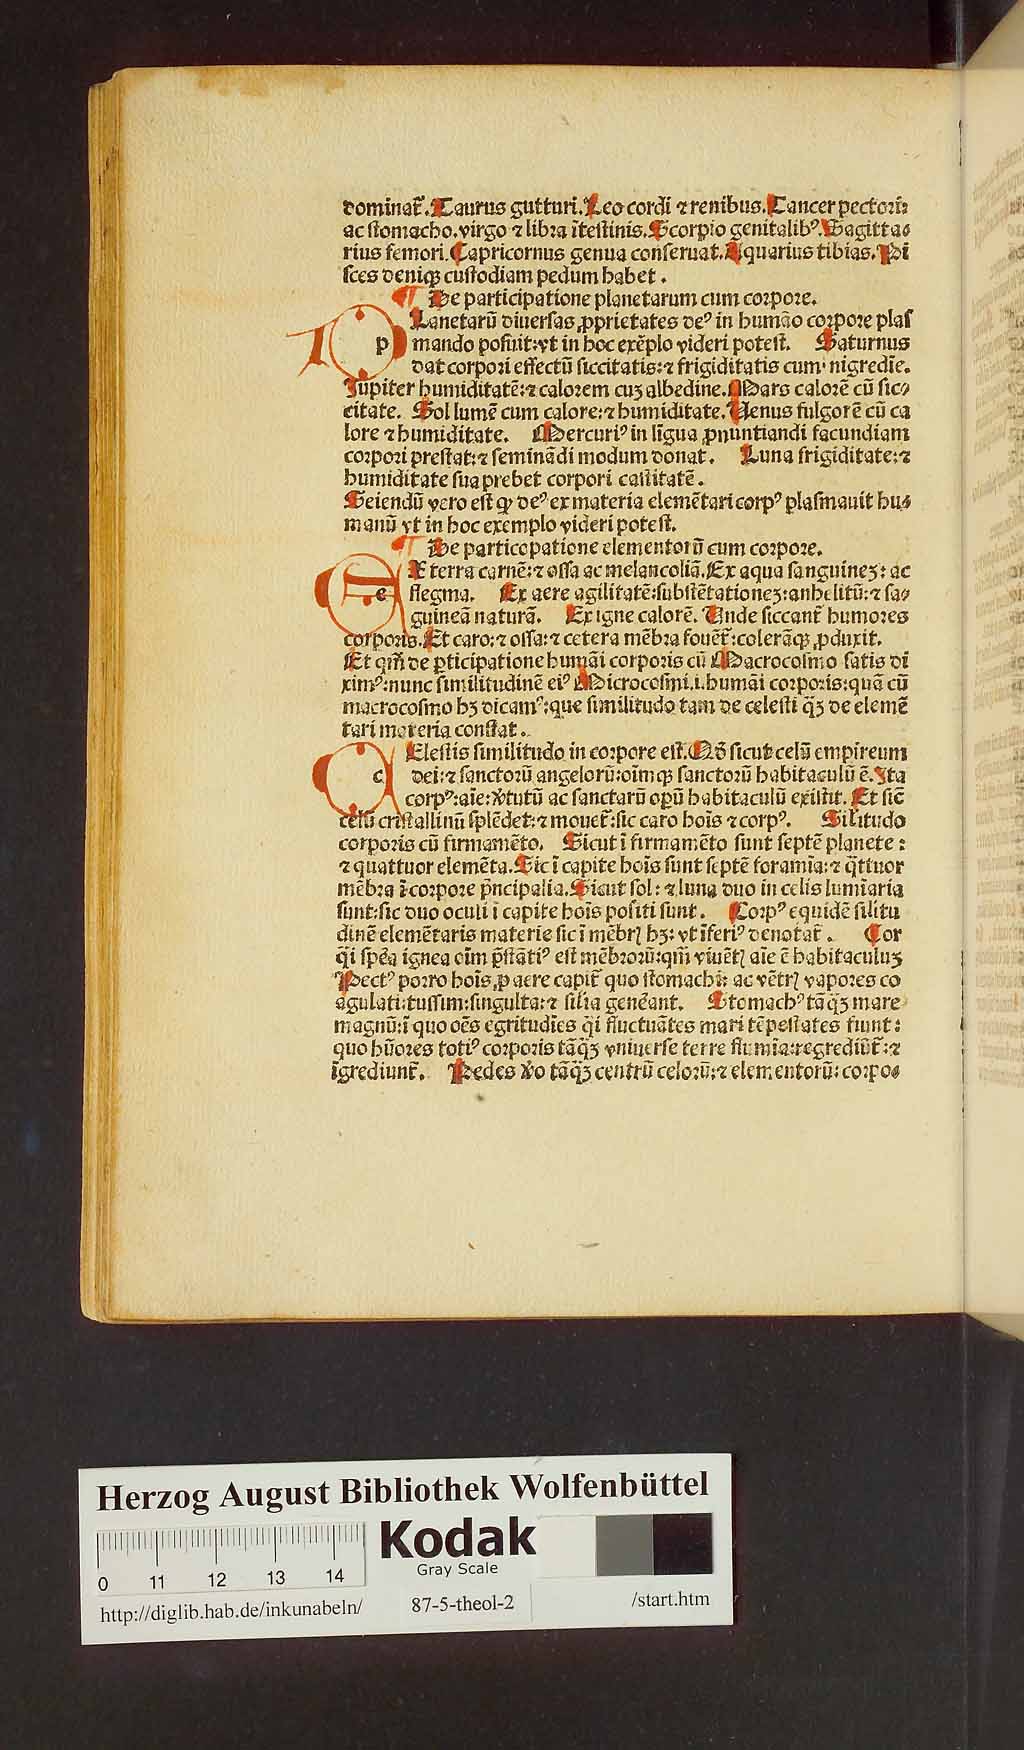 dominat᷑. Taurus gutturi. Leo cordi ⁊ renibus. Cancer pectori:
ac stomacho. virgo ⁊ libra ītestinis. Scorpio genitalibꝰ. Sagitta-
rius femori. Capricornus genua conseruat. Aquarius tibias. Pi
sces deniqꝫ custodiam pedum habet.
¶ De participatione planetarum cum corpore.
p Lanetarū diuersas ꝓprietates deꝰ in humāo corpore plas
mando posuit: vt in hoc exēplo videri potest. Saturnus
dat corpori effectū siccitatis: ⁊ frigiditatis cum nigredīe.
Jupiter humiditatē: ⁊ calorem cuꝫ albedine. Mars calorē cū sic-
citate. Sol lumē cum calore: ⁊ humiditate. Venus fulgorē cū ca
lore ⁊ humiditate. Mercuriꝰ in līgua ꝓnuntiandi facundiam
corpori prestat: ⁊ seminādi modum donat. Luna frigiditate: ⁊
humiditate sua prebet corpori castitatē.
Sciendū vero est ꝙ deꝰ ex materia elemētari corpꝰ plasmauit hu-
manū vt in hoc exemplo videri potest.
¶ De particopatione elementorū cum corpore.
e X terra carnē: ⁊ ossa ac melancoliā. Ex aqua sanguineꝫ: ac
flegma. Ex aere agilitatē: substētationeꝫ: anhelitū: ⁊ sa-
guineā naturā. Ex igne calorē. Unde siccant᷑ humores
corporis. Et caro: ⁊ ossa: ⁊ cetera mēbra fouēt᷑: colerāqꝫ ꝓduxit.
Et qm̄ de ꝑticipatione humāi corporis cū Macrocosmo satis di
ximꝰ: nunc similitudinē eiꝰ Microcosmi .i. humāi corporis: quā cū
macrocosmo hꝫ dicamꝰ: que similitudo tam de celesti q̄ꝫ de elemē
tari materia constat.
c Elestis similitudo in corpore est. Qd̄ sicut celū empireum
dei: ⁊ sanctorū angelorū: oīmqꝫ sanctorū habitaculū ē. Ita
corpꝰ: aīe: v̄tutū ac sanctarū opū habitaculū existit. Et sic̄
celū cristallinū splēdet: ⁊ mouet᷑: sic caro hoīs ⁊ corpꝰ. Silitudo
corporis cū firmamēto. Sicut ī firmamēto sunt septē planete:
⁊ quattuor elemēta. Sic ī capite hoīs sunt septē foramīa: ⁊ q̄ttuor
mēbra ī corpore p̄ncipalia. Sicut sol: ⁊ luna duo in celis lumīaria
sunt: sic duo oculi ī capite hoīs positi sunt. Corpꝰ equidē silitu
dinē elemētaris materie sic ī mēbrꝭ hꝫ: vt īferiꝰ denotat᷑. Cor
q̄i spēa ignea oīm p̄statiꝰ est mēbrorū: qm̄ viuētꝭ aīe ē habitaculuꝫ
Pectꝰ porro hoīs ꝓ aere capit᷑ quo stomachi: ac vētrꝭ vapores co
agulati: tussim: singulta: ⁊ silia genēant. Stomachꝰ tāq̄ꝫ mare
magnū: ī quo oēs egritudīes q̄i fluctuātes mari tēpestates fiunt:
quo hūores totiꝰ corporis tāq̄ꝫ vniuerse terre flumīa: regrediūt᷑: ⁊
īgrediunt᷑. Pedes v̄o tāq̄ꝫ centrū celorū: ⁊ elementorū: corpo-
Herzog August Bibliothek Wolfenbüttel
Kodak
Gray Scale
0 11 12 13 14
http://diglib.hab.de/inkunabeln/ 87-5-theol-2 /start.htm